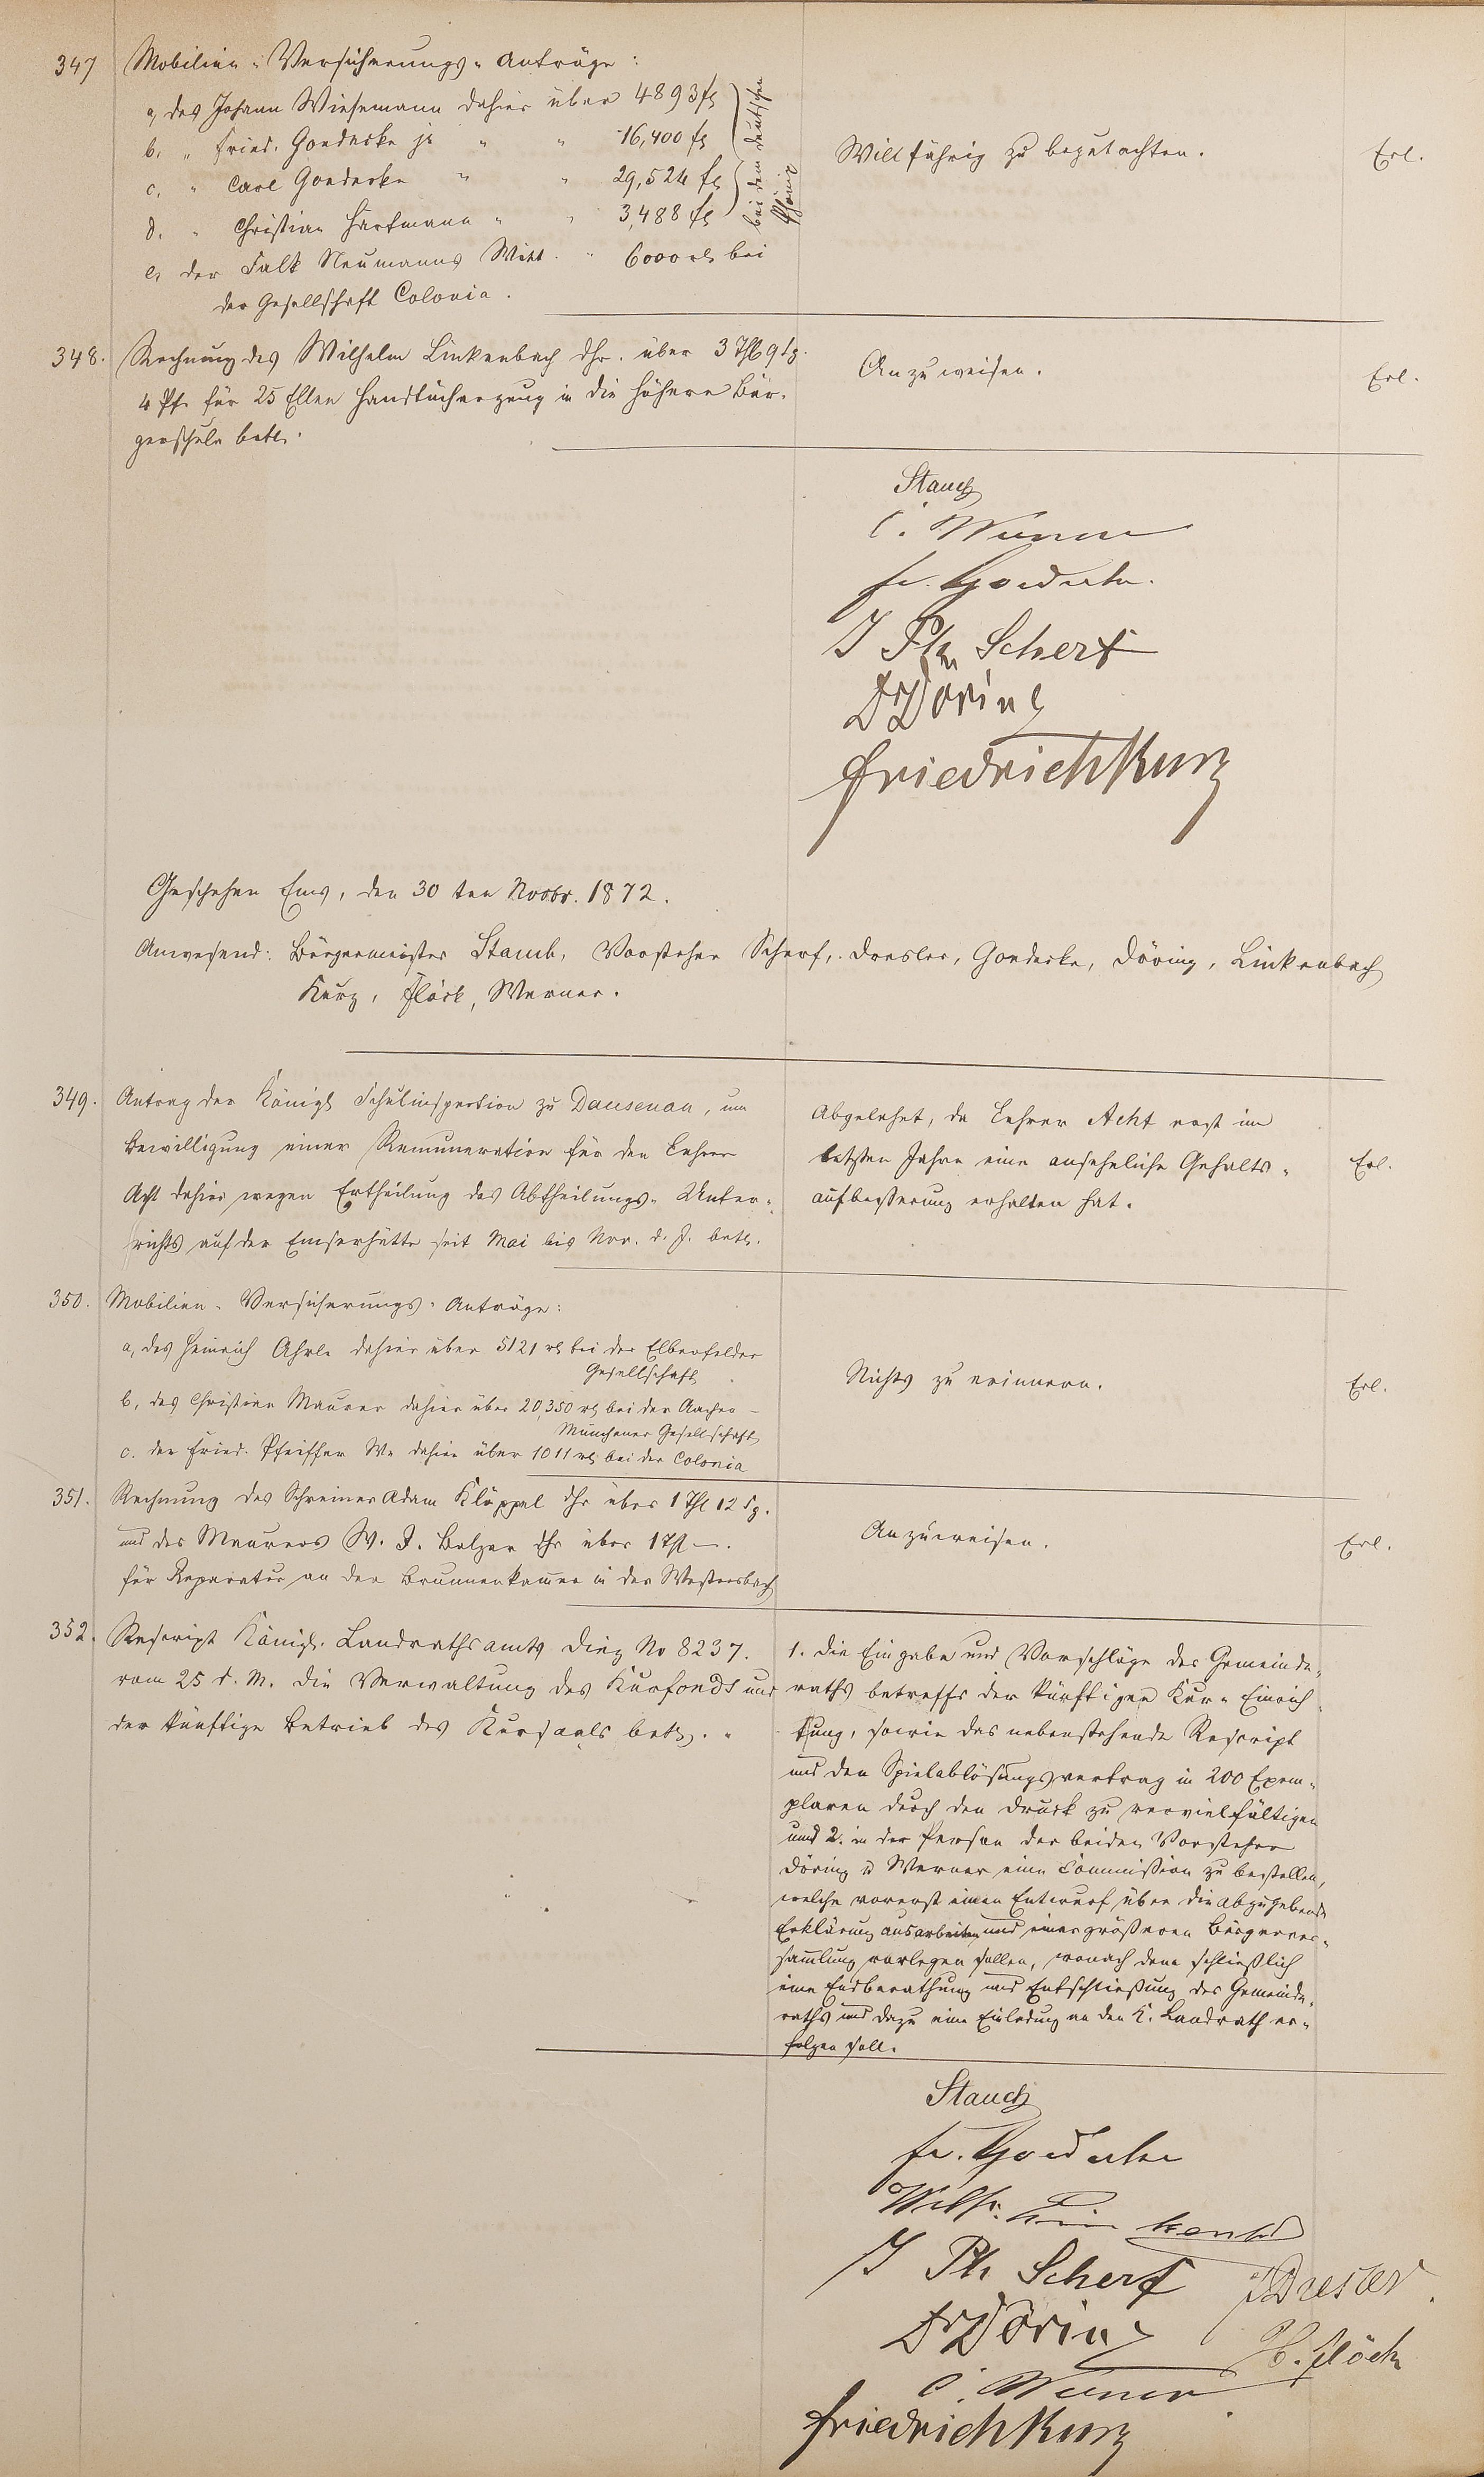 347 Mobilien-Versicherungs-Anträge:
a, des Johann Wiesemann dahier über 4893 fl
b, " Fried. Goedecke jr " " 16,400 fl
c, " Carl Goedecke " " 29,524 fl
d. " Christian Hartmann " " 3,488 fl
bei dem deutschen
Phönix
e, der Falk Neumanns Witt. " 6000 rl bei
der Gesellschaft Colonia.
Willfährig zu begutachten.
Erl.
348. Rechnung des Wilhelm Linkenbach dhr. über 3 Thl 9 Sg.
4 Pf. für 25 Ellen Handtücherzeug in die höhere Bür-
gerschule betr.
Anzuweisen.
Erl.
Stauch
C. Werner
Fr. Goedecke.
J Ph Scherf
Dr Döring
Friedrich Kurz
Geschehen Ems, den 30 ten Novbr. 1872.
Anwesend: Bürgermeister Stauch, Vorsteher Scherf, Dresler, Goedecke, Döring, Linkenbach
Kurz, Flöck, Werner.
349. Antrag der Königl Schulinspection zu Dausenau, um
Bewilligung einer Remuneration für den Lehrer
Acht dahier wegen Ertheilung des Abtheilungs-Unter-
richts auf der Emserhütte seit Mai bis Nov. d. J. betr.
Abgelehnt, da Lehrer Acht erst im
letzten Jahre eine ansehnliche Gehalts-
aufbesserung erhalten hat.
Erl.
350. Mobilien-Versicherungs-Anträge:
a, des Heinrich Ahrle dahier über 5121 rl bei der Elberfelder
Gesellschaft
b, des Christian Maurer dahier über 20,350 rl bei der Aacher-
Münchener Gesellschaft
c. der Fried. Pfeiffer We dahier über 1011 rl bei der Colonia
Nichts zu erinnern.
Erl.
351. Rechnung des Schreiner Adam Klöppel dhr über 1 Thl 12 Sg.
und des Maurers W. J. Balzer dhr über 1 Thl —.
für Reparatur an der Brunnenkamer in der Westersbach
Anzuweisen.
Erl.
352. Rescript Königl. Landrathsamts Diez No 8237.
vom 25 d. M. die Verwaltung des Kurfonds und
der künftige Betrieb des Kursaals betr.
1. die Eingabe und Vorschläge des Gemeinde-
raths betreffs der künftigen Kur-Einrich-
tung, sowie das nebenstehende Rescript
und den Spielablösungsvertrag in 200 Exem-
plaren durch den Druck zu vervielfältigen
und 2. in der Person der beiden Vorsteher
Döring u Werner eine Commission zu bestellen,
welche vorerst einen Entwurf über die abzugebende
Erklärung ausarbeiten und einer größeren Bürgerver-
sammlung vorlegen sollen, wonach dann schließlich
eine Endberathung und Entschließung des Gemeinde-
raths und dazu eine Einladung an den K. Landrath er-
folgen soll.
Stauch
Fr. Goedecke
Wilh. Linkenbach
J Ph Scherf
J Dresler.
Dr Döring
H. Flöck
C. Werner
Friedrich Kurz